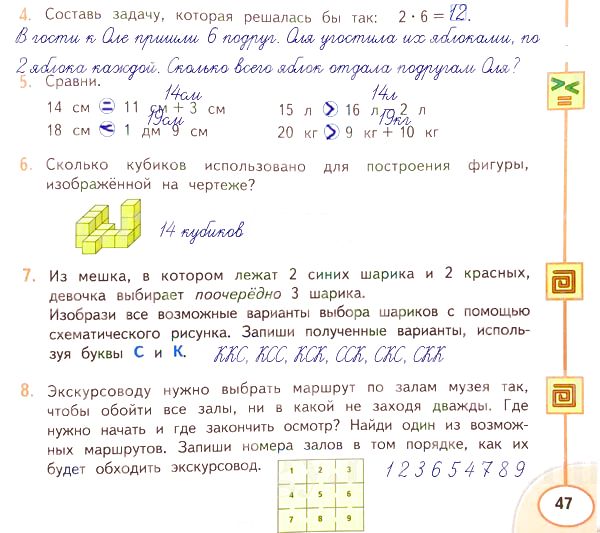 4. Составь задачу, которая решалась бы так: 2 · 6 = 12.
В гости к Оле пришли 6 подруг. Оля угостила их яблоками, по
2 яблока каждой. Сколько всего яблок отдала подругам Оля?
5. Сравни.
14 см 14 л
14 см = 11 см + 3 см 15 л > 16 л - 2 л
19 см 19 кг
18 см < 1 дм 9 см 20 кг > 9 кг + 10 кг
> <
=
6. Сколько кубиков использовано для построения фигуры,
изображённой на чертеже?
14 кубиков
7. Из мешка, в котором лежат 2 синих шарика и 2 красных,
девочка выбирает поочерёдно 3 шарика.
Изобрази все возможные варианты выбора шариков с помощью
схематического рисунка. Запиши полученные варианты, исполь-
зуя буквы С и К. ККС, КСС, КСК, ССК, СКС, СКК
8. Экскурсоводу нужно выбрать маршрут по залам музея так,
чтобы обойти все залы, ни в какой не заходя дважды. Где
нужно начать и где закончить осмотр? Найди один из возмож-
ных маршрутов. Запиши номера залов в том порядке, как их
будет обходить экскурсовод.
1 2 3
4 5 6
7 8 9
1 2 3 6 5 4 7 8 9
47